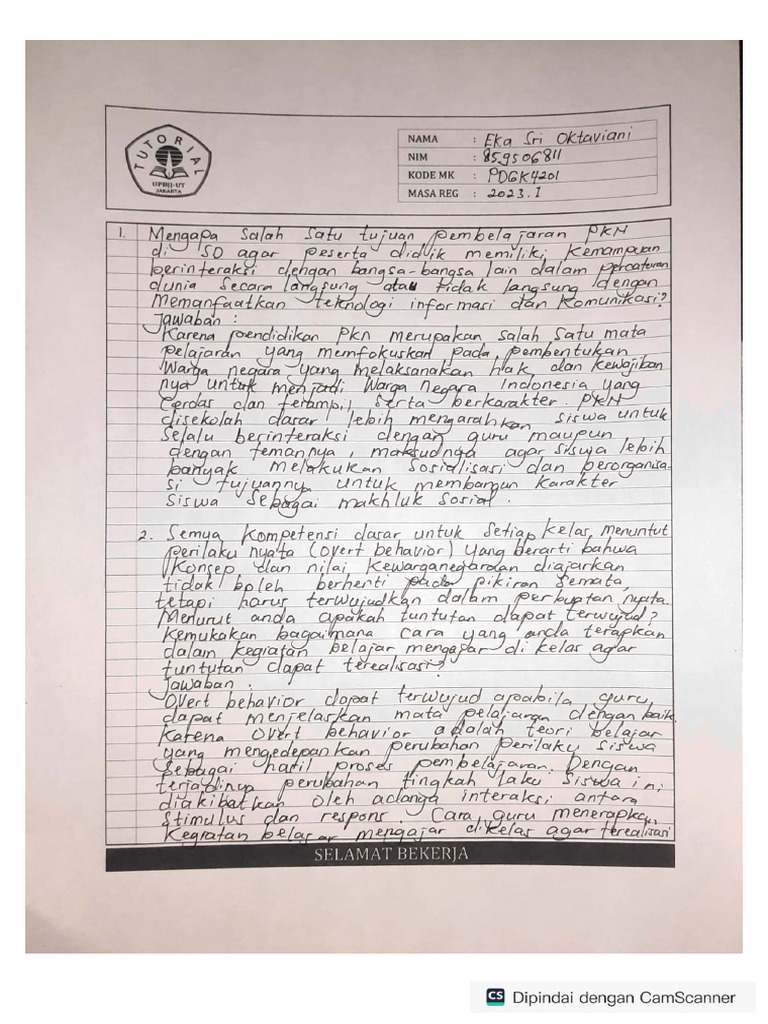 TUTORIAL
UPBJJ-UT
JAKARTA
NAMA : Eka Sri Oktaviani
NIM : 859506811
KODE MK : PDGK4201
MASA REG : 2023.1
1. Mengapa Salah Satu tujuan pembelajaran PKN
di SD agar peserta didik memiliki kemampuan
berinteraksi dengan bangsa-bangsa lain dalam percaturan
dunia Secara langsung atau tidak langsung dengan
Memanfaatkan teknologi informasi dan Komunikasi?
Jawaban :
Karena pendidikan PKn merupakan Salah Satu mata
pelajaran yang memfokuskan pada pembentukan
Warga negara yang melaksanakan hak dan Kewajiban
nya untuk menjadi Warga Negara Indonesia yang
Cerdas dan terampil, Serta berkarakter. PKN
disekolah dasar lebih mengarahkan Siswa untuk
Selalu berinteraksi dengan guru maupun
dengan temannya, maksudnya agar siswa lebih
banyak melakukan Sosialisasi dan berorganisa-
si tujuannya untuk membangun Karakter
Siswa Sebagai makhluk Sosial.
2. Semua Kompetensi dasar untuk Setiap kelas, menuntut
perilaku nyata (overt behavior) yang berarti bahwa
Konsep dan nilai Kewarganegaraan diajarkan
tidak boleh berhenti pada pikiran Semata
tetapi harus terwujudkan dalam perbuatan nyata.
Menurut anda apakah tuntutan dapat terwujud?
Kemukakan bagaimana Cara yang anda terapkan
dalam kegiatan belajar mengajar di kelas agar
tuntutan dapat terealisasi?
Jawaban :
Overt behavior dapat terwujud apabila guru
dapat menjelaskan mata pelajaran dengan baik
Karena overt behavior adalah teori belajar
yang mengedepankan perubahan perilaku siswa
Sebagai hasil proses pembelajaran. Dengan
terjadinya perubahan tingkah laku Siswa ini
diakibatkan oleh adanya interaksi antara
Stimulus dan respons. Cara guru menerapkan
Kegiatan belajar mengajar dikelas agar terealisasi
SELAMAT BEKERJA
CS Dipindai dengan CamScanner